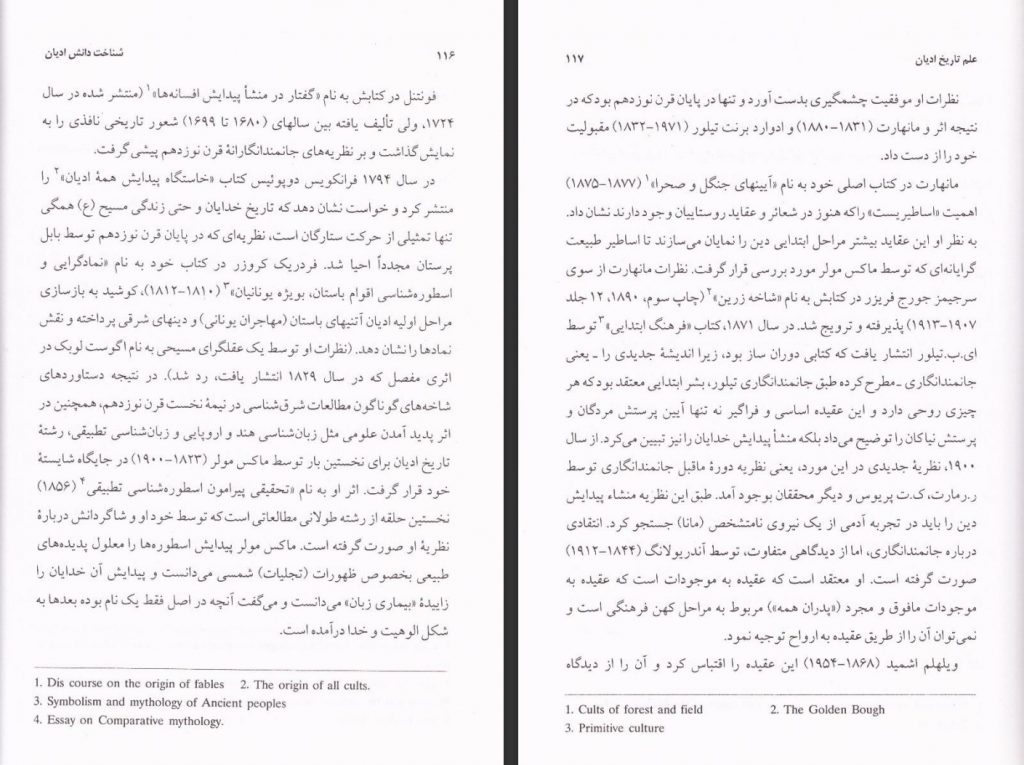 ۱۱۶
شناخت دانش ادیان
فونتنل در کتابش به نام «گفتار در منشأ پیدایش افسانه‌ها»۱ (منتشر شده در سال
۱۷۲۴، ولی تألیف یافته بین سالهای (۱۶۸۰ تا ۱۶۹۹) شعور تاریخی نافذی را به
نمایش گذاشت و بر نظریه‌های جانمندانگارانهٔ قرن نوزدهم پیشی گرفت.
در سال ۱۷۹۴ فرانکویس دوپوئیس کتاب «خاستگاه پیدایش همهٔ ادیان»۲ را
منتشر کرد و خواست نشان دهد که تاریخ خدایان و حتی زندگی مسیح (ع) همگی
تنها تمثیلی از حرکت ستارگان است، نظریه‌ای که در پایان قرن نوزدهم توسط بابل
پرستان مجدداً احیا شد. فردریک کروزر در کتاب خود به نام «نمادگرایی و
اسطوره‌شناسی اقوام باستان، بویژه یونانیان»۳ (۱۸۱۰-۱۸۱۲)، کوشید به بازسازی
مراحل اولیه ادیان آتنیهای باستان (مهاجران یونانی) و دینهای شرقی پرداخته و نقش
نمادها را نشان دهد. (نظرات او توسط یک عقلگرای مسیحی به نام اگوست لوبک در
اثری مفصل که در سال ۱۸۲۹ انتشار یافت، رد شد). در نتیجه دستاوردهای
شاخه‌های گوناگون مطالعات شرق‌شناسی در نیمهٔ نخست قرن نوزدهم، همچنین در
اثر پدید آمدن علومی مثل زبان‌شناسی هند و اروپایی و زبان‌شناسی تطبیقی، رشتهٔ
تاریخ ادیان برای نخستین بار توسط ماکس مولر (۱۸۲۳-۱۹۰۰) در جایگاه شایستهٔ
خود قرار گرفت. اثر او به نام «تحقیقی پیرامون اسطوره‌شناسی تطبیقی۴ (۱۸۵۶)
نخستین حلقه از رشته طولانی مطالعاتی است که توسط خود او و شاگردانش دربارهٔ
نظریهٔ او صورت گرفته است. ماکس مولر پیدایش اسطوره‌ها را معلول پدیده‌های
طبیعی بخصوص ظهورات (تجلیات) شمسی می‌دانست و پیدایش آن خدایان را
زاییدهٔ «بیماری زبان» می‌دانست و می‌گفت آنچه در اصل فقط یک نام بوده بعدها به
شکل الوهیت و خدا درآمده است.
1. Dis course on the origin of fables 2. The origin of all cults.
3. Symbolism and mythology of Ancient peoples
4. Essay on Comparative mythology.
علم تاریخ ادیان
۱۱۷
نظرات او موفقیت چشمگیری بدست آورد و تنها در پایان قرن نوزدهم بود که در
نتیجه اثر و مانهارت (۱۸۳۱-۱۸۸۰) و ادوارد برنت تیلور (۱۹۷۱-۱۸۳۲) مقبولیت
خود را از دست داد.
مانهارت در کتاب اصلی خود به نام «آیینهای جنگل و صحرا»۱ (۱۸۷۷-۱۸۷۵)
اهمیت «اساطیریست» را که هنوز در شعائر و عقاید روستاییان وجود دارند نشان داد.
به نظر او این عقاید بیشتر مراحل ابتدایی دین را نمایان می‌سازند تا اساطیر طبیعت
گرایانه‌ای که توسط ماکس مولر مورد بررسی قرار گرفت. نظرات مانهارت از سوی
سرجیمز جورج فریزر در کتابش به نام «شاخه زرین»۲ (چاپ سوم، ۱۸۹۰، ۱۲ جلد
۱۹۰۷-۱۹۱۳) پذیرفته و ترویج شد. در سال ۱۸۷۱، کتاب «فرهنگ ابتدایی»۳ توسط
ای.ب.تیلور انتشار یافت که کتابی دوران ساز بود، زیرا اندیشهٔ جدیدی را ـ یعنی
جانمندانگاری ـ مطرح کرده طبق جانمندانگاری تیلور، بشر ابتدایی معتقد بود که هر
چیزی روحی دارد و این عقیده اساسی و فراگیر نه تنها آیین پرستش مردگان و
پرستش نیاکان را توضیح می‌داد بلکه منشأ پیدایش خدایان را نیز تبیین می‌کرد. از سال
۱۹۰۰، نظریهٔ جدیدی در این مورد، یعنی نظریه دورهٔ ماقبل جانمندانگاری توسط
ر.رمارت، ک.ت پریوس و دیگر محققان بوجود آمد. طبق این نظریه منشاء پیدایش
دین را باید در تجربه آدمی از یک نیروی نامتشخص (مانا) جستجو کرد. انتقادی
درباره جانمندانگاری، اما از دیدگاهی متفاوت، توسط آندریولانگ (۱۸۴۴-۱۹۱۲)
صورت گرفته است. او معتقد است که عقیده به موجودات است که عقیده به
موجودات مافوق و مجرد («پدران همه») مربوط به مراحل کهن فرهنگی است و
نمی‌توان آن را از طریق عقیده به ارواح توجیه نمود.
ویلهلم اشمید (۱۸۶۸-۱۹۵۴) این عقیده را اقتباس کرد و آن را از دیدگاه
1. Cults of forest and field 2. The Golden Bough
3. Primitive culture